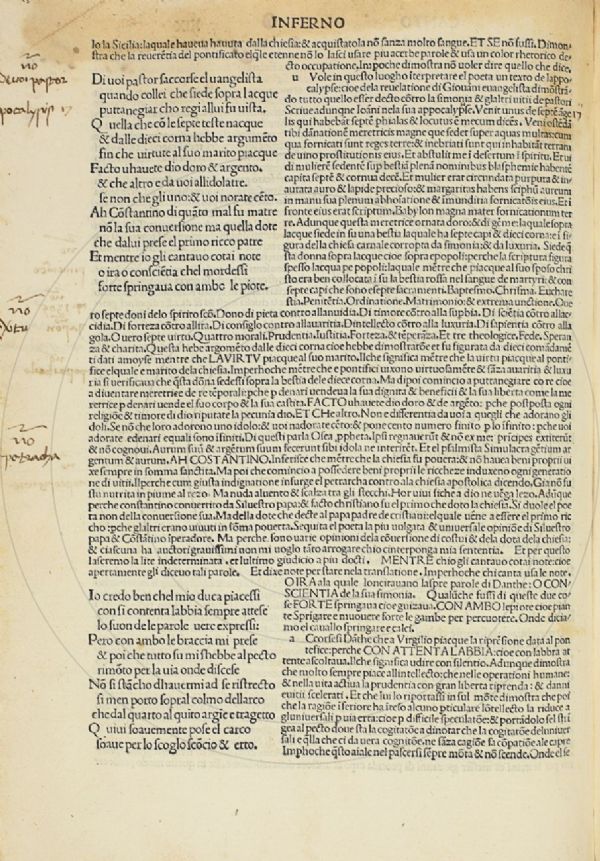 INFERNO
lo la Sicilia: laquale haueua hauuta dalla chiesa: & acquistatola nō sanza molto sangue. ET SE nō fussi. Dimon
stra che la reuerētia del pontificato elqle etenne nō lo lasci usare piu acerbe parole & usa un color rhetorico de
cto occupatione. Impoche dimostra nō uoler dire quello che dice.
nō
de uoi pastor
Di uoi pastor saccorse eluangelista
quando collei che siede sopra lacque
puttanegiar cho regi allui fu uista.
Quella che cō le septe teste nacque
& dalle dieci corna hebbe argumēto
fin che uirtute al suo marito piacque
Facto uhauete dio doro & argento.
& che altro e da uoi allidolatre.
se non che gli uno: & uoi norate cēto.
Ah Cōstantino di quāto mal fu matre
nō la sua conuersione ma quella dote
che dalui prese el primo ricco patre
Et mentre io gli cantauo cotai note
o ira o consciētia chel mordessi
forte springaua con ambo le piote.
u Vole in questo luogho iterpretare el poeta un texto delappo
calypse: cioe della reuelatione di Giouāni euangelista dimostrā
do tutto quello esser decto cōtro la simonia & glaltri uitii de pastori
Scriue adunque Ioanni nella sua appocalypse. Venit unus de septē āge
17
lis qui habebāt septē phialas & locutus ē mecum dicēs. Veni ostēdā
tibi dānationē meretricis magne que sedet super aquas multas: cum
qua fornicati sunt reges terrē: & inebriati sunt qui inhabitāt terram
de uino prostitutionis eius. Et abstulit me i desertum i spiritu. Et ui
di mulierē sedentē sup bestiā plenā nominibus blasphemie habentē
capita septē & cornua decē. Et mulier erat circundata purpura & in
aurata auro & lapide precioso: & margaritas habens sciphū aureum
in manu sua plenum abhominatione & imunditia fornicatōis eius. Et i
fronte eius erat scriptum. Babylon magna mater fornicationum ter
re. Adunque questa meretrice ornata doro: & di gēme: laquale sopra
lacque siede in su una bestia laquale ha septe capi & dieci corna: e fi
gura della chiesa carnale corropta da simonia: & da luxuria. Siede q
sta donna sopra lacque cioe sopra epopoli: perche la scriptura figura
spesso lacqua pe popoli: laquale mētre che piacque al suo sposo chri
sto era ben collocata i su la bestia rossa nel sangue de martyri: & con
septe capi che sono e septe sacramenti. Baptesmo. Chrisma. Eucha
stia. Penitētia. Ordinatione. Matrimonio: & extrema unctione. Oue
ro septe doni delo spirito scō. Dono di pieta contro allanuidia. Di timore cōtro alla supbia. Di sciētia cōtro allac
cidia. Di forteza cōtro allira. Di consiglo contro allauaritia. Dintellecto cōtro alla luxuria. Di sapientia cōtro alla
gola. O uero septe uirtu. Quattro morali. Prudentia. Iustitia. Forteza. & tēperāza. Et tre theologice. Fede. Speran
za & charita. Questa hebe argomēto dalle dieci corna cioe hebbe dimostratiōe et fu figurata da dieci comadamē
ti dati amoyse mentre che LA VIRTV piacque al suo marito. Ilche significa mētre che la uirtu piacque al ponti
fice elquale e marito dela chiesa. Imperhoche mētre che e pontifici uixono uirtuosamēte & sāza auaritia & luxu
ria si uerificaua che qsta dōna sedessi sopra la bestia de diece corna. Ma dipoi comincio a puttanegiare co re cioe
a diuentare meretrice de re tēporali: pche p denari uendeua la sua dignita & beneficii & la sua liberta come la me
retrice p denari uende el suo corpo & la sua castita. FACTO uhauete dio doro & de argēto: pche postposta ogni
religiōe & timore di dio riputate la pecunia dio. ET CHE altro. Non e differentia da uoi a quegli che adorano gli
doli. Se nō che loro adorono uno idolo: & uoi nadorate cēto: & pone cento numero finito p lo ifinito: pche uoi
adorate edenari equali sono ifiniti. Di questi parla Osea ppheta. Ipsi regnauerūt & nō ex me: pricipes extiterūt
& nō cognoui. Aurum suū & argētum suum fecerunt sibi idola ne interirēt. Et el psalmista Simulacra gētium ar
gentum & aurum. AH COSTANTINO. Inferisce che mētre che la chiesa fu pouera: & nō haueua beni proprii ui
xe sempre in somma sanctita. Ma poi che comincio a possedere beni proprii le riccheze induxeno ogni generatio
ne di uitii. Ilperche cum giusta indignatione insurge el petrarcha contro ala chiesa apostolica dicendo. Gia nō fu
sta nutrita in piume al rezo. Ma nuda aluento & scalza tra gli stecchi. Hor uiui siche a dio ne uēga lezo. Adūque
perche constantino conuertito da Siluestro papa: & facto christiano fu el primo che doto la chiesa. Si duole el poe
ta non della conuersione sua. Ma della dote che dette al papa padre de cristiani: elquale uiene a essere el primo ric
cho: pche glaltri erano uiuuti in sōma pouerta. Sequita el poeta la piu uolgata & uniuersale opinione di Siluestro
papa & Costātino iperadore. Ma perche sono uarie opinioni dela cōuersione di costui & dela dota dela chiesa:
& ciascuna ha auctori grauissimi non mi uoglo tāto arrogare chio ci interponga mia sententia. Et per questo
lasseremo la lite indeterminata. et lultimo giudicio a piu docti. MENTRE chio gli cantauo cotai note: cioe
apertamente gli diceuo tali parole. Et dixe note per stare nella translatione. Imperhoche chi canta usa le note.
Io credo ben chel mio duca piacessi
con si contenta labbia sempre attese
lo suon de le parole uere expressi:
Pero con ambo le braccia mi prese
& poi che tutto su mi shebbe al pecto
rimōto per la uia onde discese
Nō si stācho dhauermi ad se ristrecto
si men porto sopral colmo dellarco
che dal quarto al quito argie e tragetto
Quiui soauemente pose el carco
soaue per lo scoglo scōcio & erto.
O IRA a la quale loncitauano laspre parole di Danthe: O CON
SCIENTIA de la sua simonia. Qualūche fussi di queste due co
se FORTE springaua cioe guizaua. CON AMBO le piote cioe pian
te Sprigare e muouere forte le gambe per percuotere. Onde dicia
mo el cauallo springare e calcs.
a Ccorsesi Dāthe che a Virgilio piacque la riprēsione data al pon
tefice: perche CON ATTENTA LABBIA: cioe con labbra at
tente ascoltaua. Ilche significa udire con silentio. Adunque dimostra
che molto sempre piace allintellecto: che nelle operationi humane:
& nella uita actiua la prudentia con gran liberta riprenda: & danni
euitii scelerati. Et che lui lo riportassi in sul mōte dimostra che po
che la ragiōe iferiore ha ireso alcuno pticulare lōtellecto la riduce a
gluniuersali p uia erta: cioe p difficile speculatiōe: & portādolo sel stri
gea al pecto doue sta la cogitatōe a dinotar che la cogitatōe deluniuer
sali e qlla che ci da uera cognitōe. ne sāza cagiōe fa cōpatiōe ale capre
Imphoche qsto aiale nel pascersi sepre mōta & nō scende. Onde el se